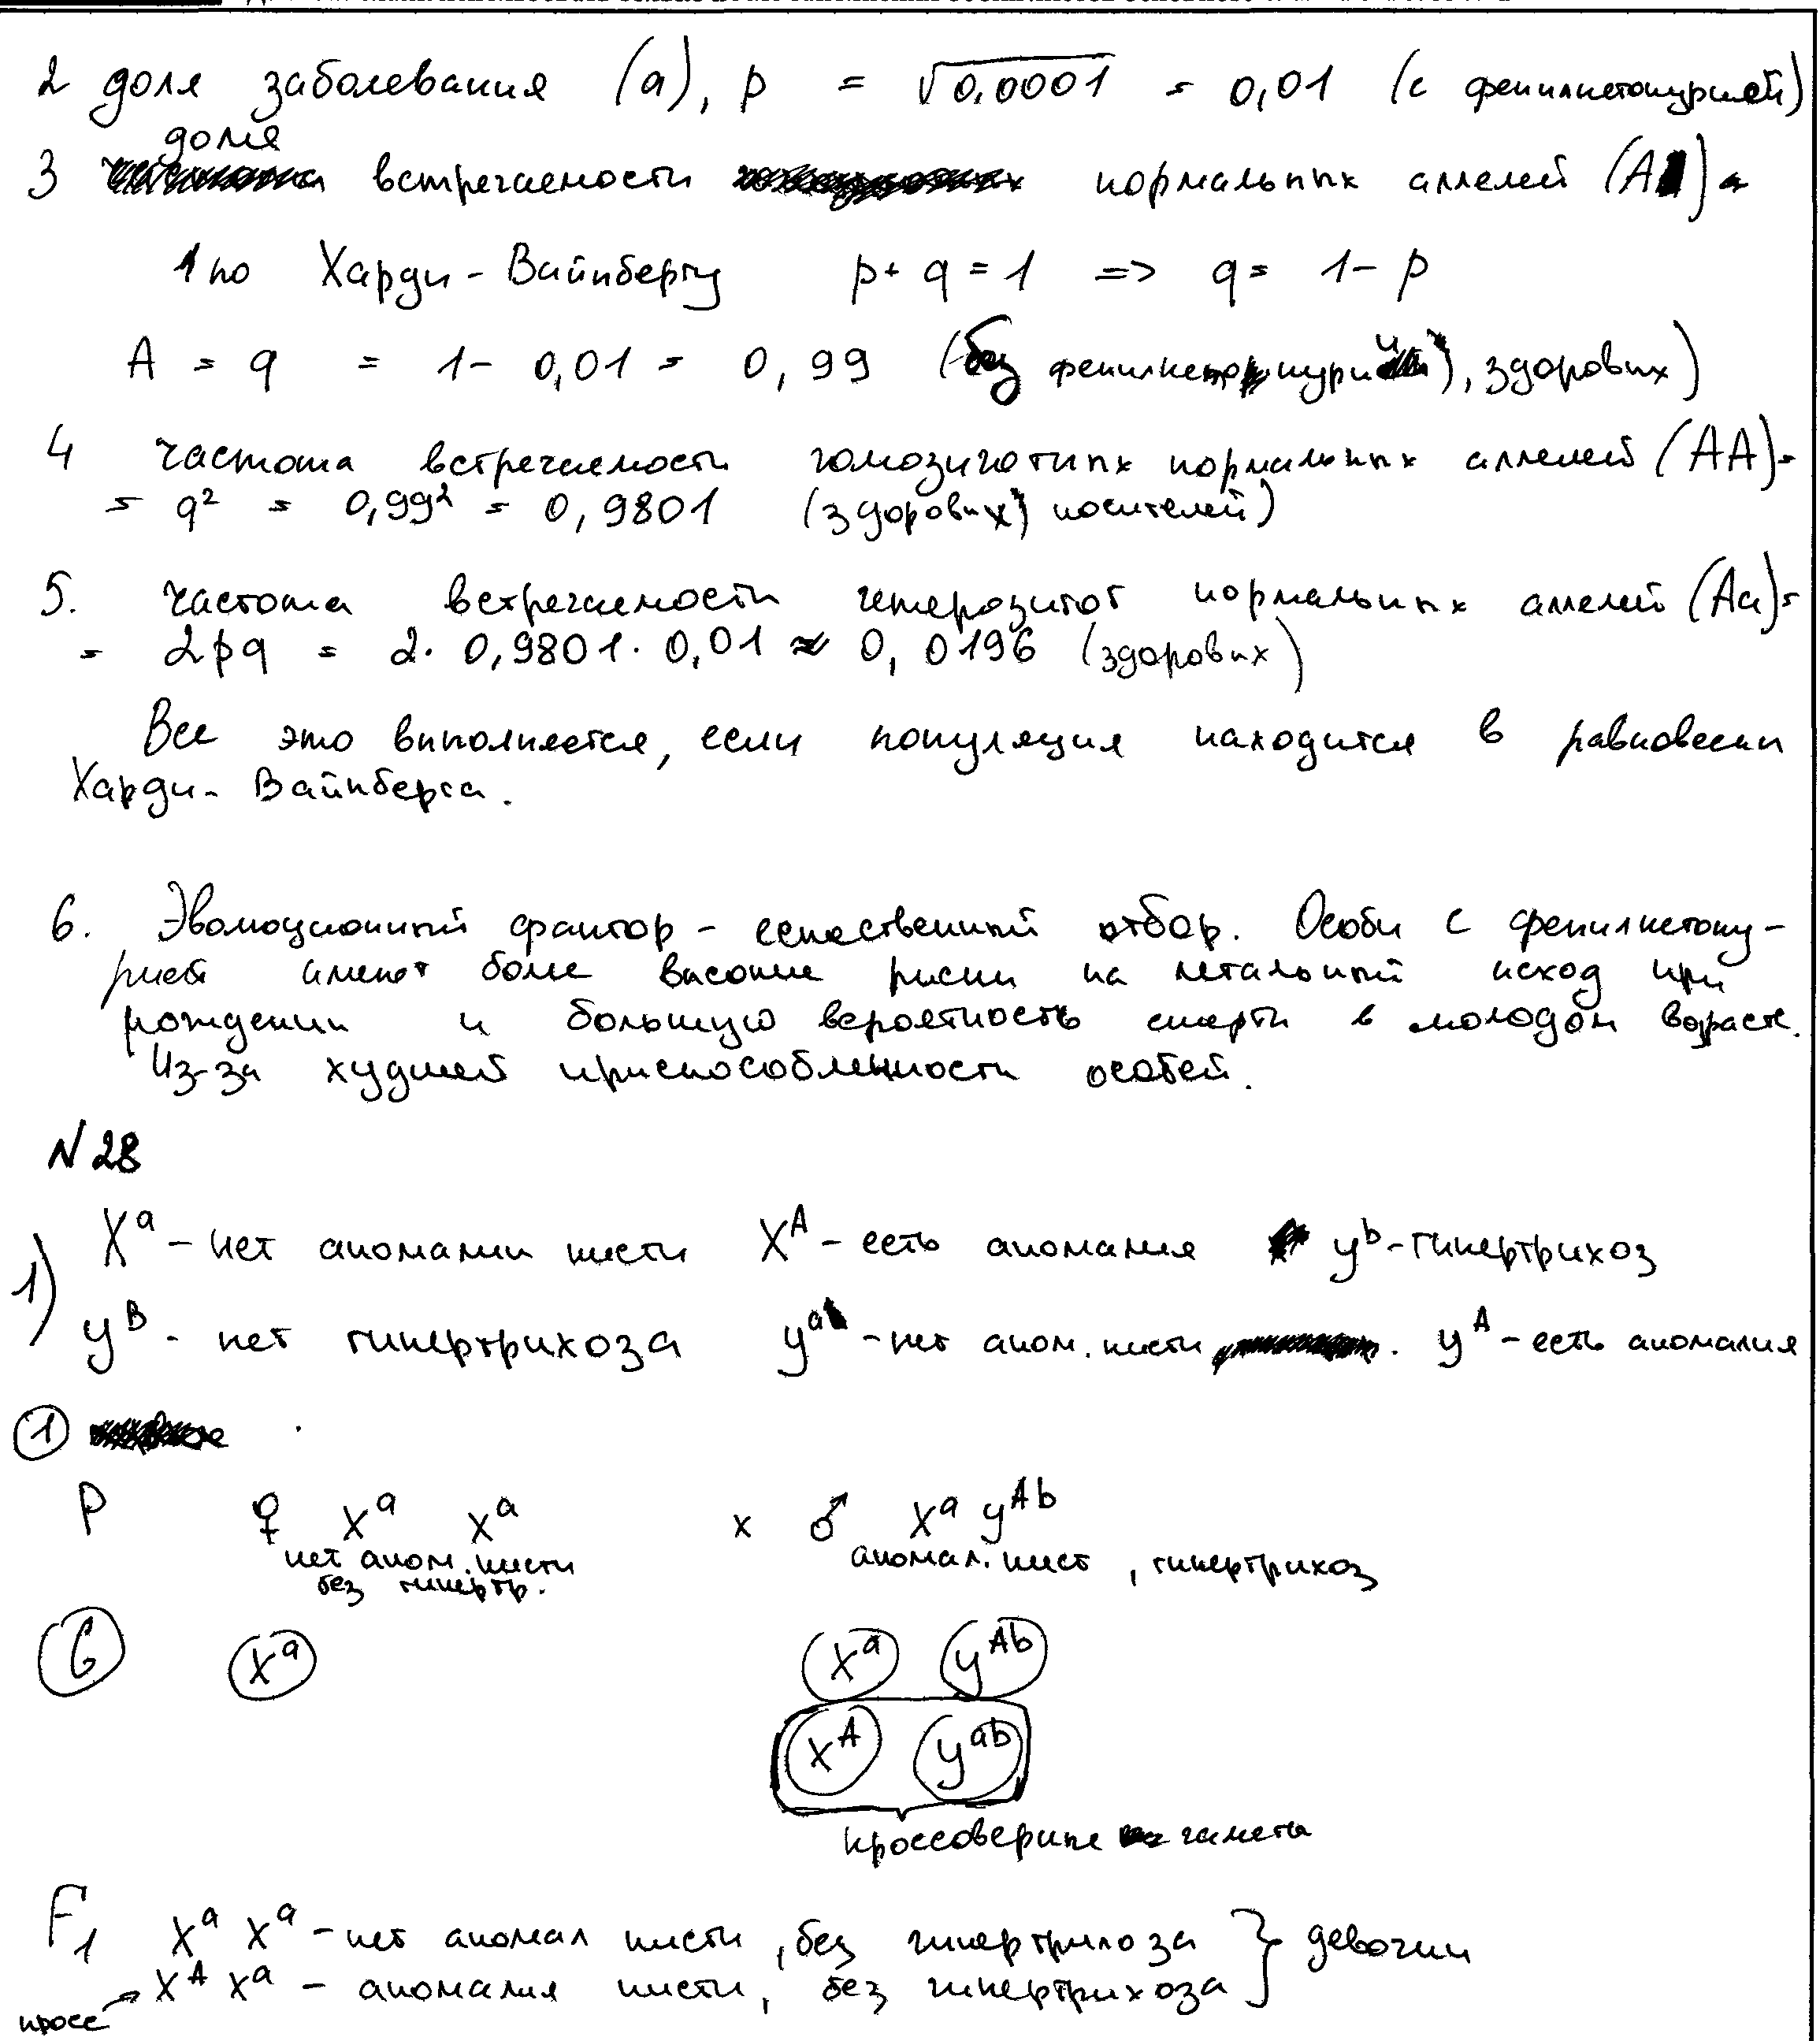 2 доля заболевания (а), p = √0,0001 = 0,01 (с фенилкетонурией)
доля
3 встречаемости нормальных аллелей (А) =
1 по Харди-Вайнбергу p+q=1 => q= 1-p
A = q = 1-0,01 = 0,99 (без фенилкетонурии, здоровых)
4 частота встречаемости гомозиготных нормальных аллелей (АА)=
= q² = 0,99² = 0,9801 (здоровых носителей)
5. частота встречаемости гетерозигот нормальных аллелей (Аа)=
= 2pq = 2·0,9801·0,01 ≈ 0,0196 (здоровых)
Все это выполняется, если популяция находится в равновесии
Харди-Вайнберга.
6. Эволюционный фактор - естественный отбор. Особи с фенилкетону-
рией имеют более высокие риски на летальный исход при
рождении и большую вероятность смерти в молодом возрасте.
Из-за худшей приспособленности особей.
N 28
1) Xᵃ - нет аномалии кисти Xᴬ - есть аномалия yᵇ - гипертрихоз
yᴮ - нет гипертрихоза yᵃ - нет аном. кисти. yᴬ - есть аномалия
①
P ♀ Xᵃ Xᵃ x ♂ Xᵃ yᴬᵇ
нет аном. кисти аномал. кист, гипертрихоз
без гипертр.
G Xᵃ Xᵃ yᴬᵇ
Xᴬ yᵃᵇ
кроссоверные гаметы
F₁ Xᵃ Xᵃ - нет аномал кисти, без гипертрихоза } девочки
кросс → Xᴬ Xᵃ - аномалия кисти, без гипертрихоза